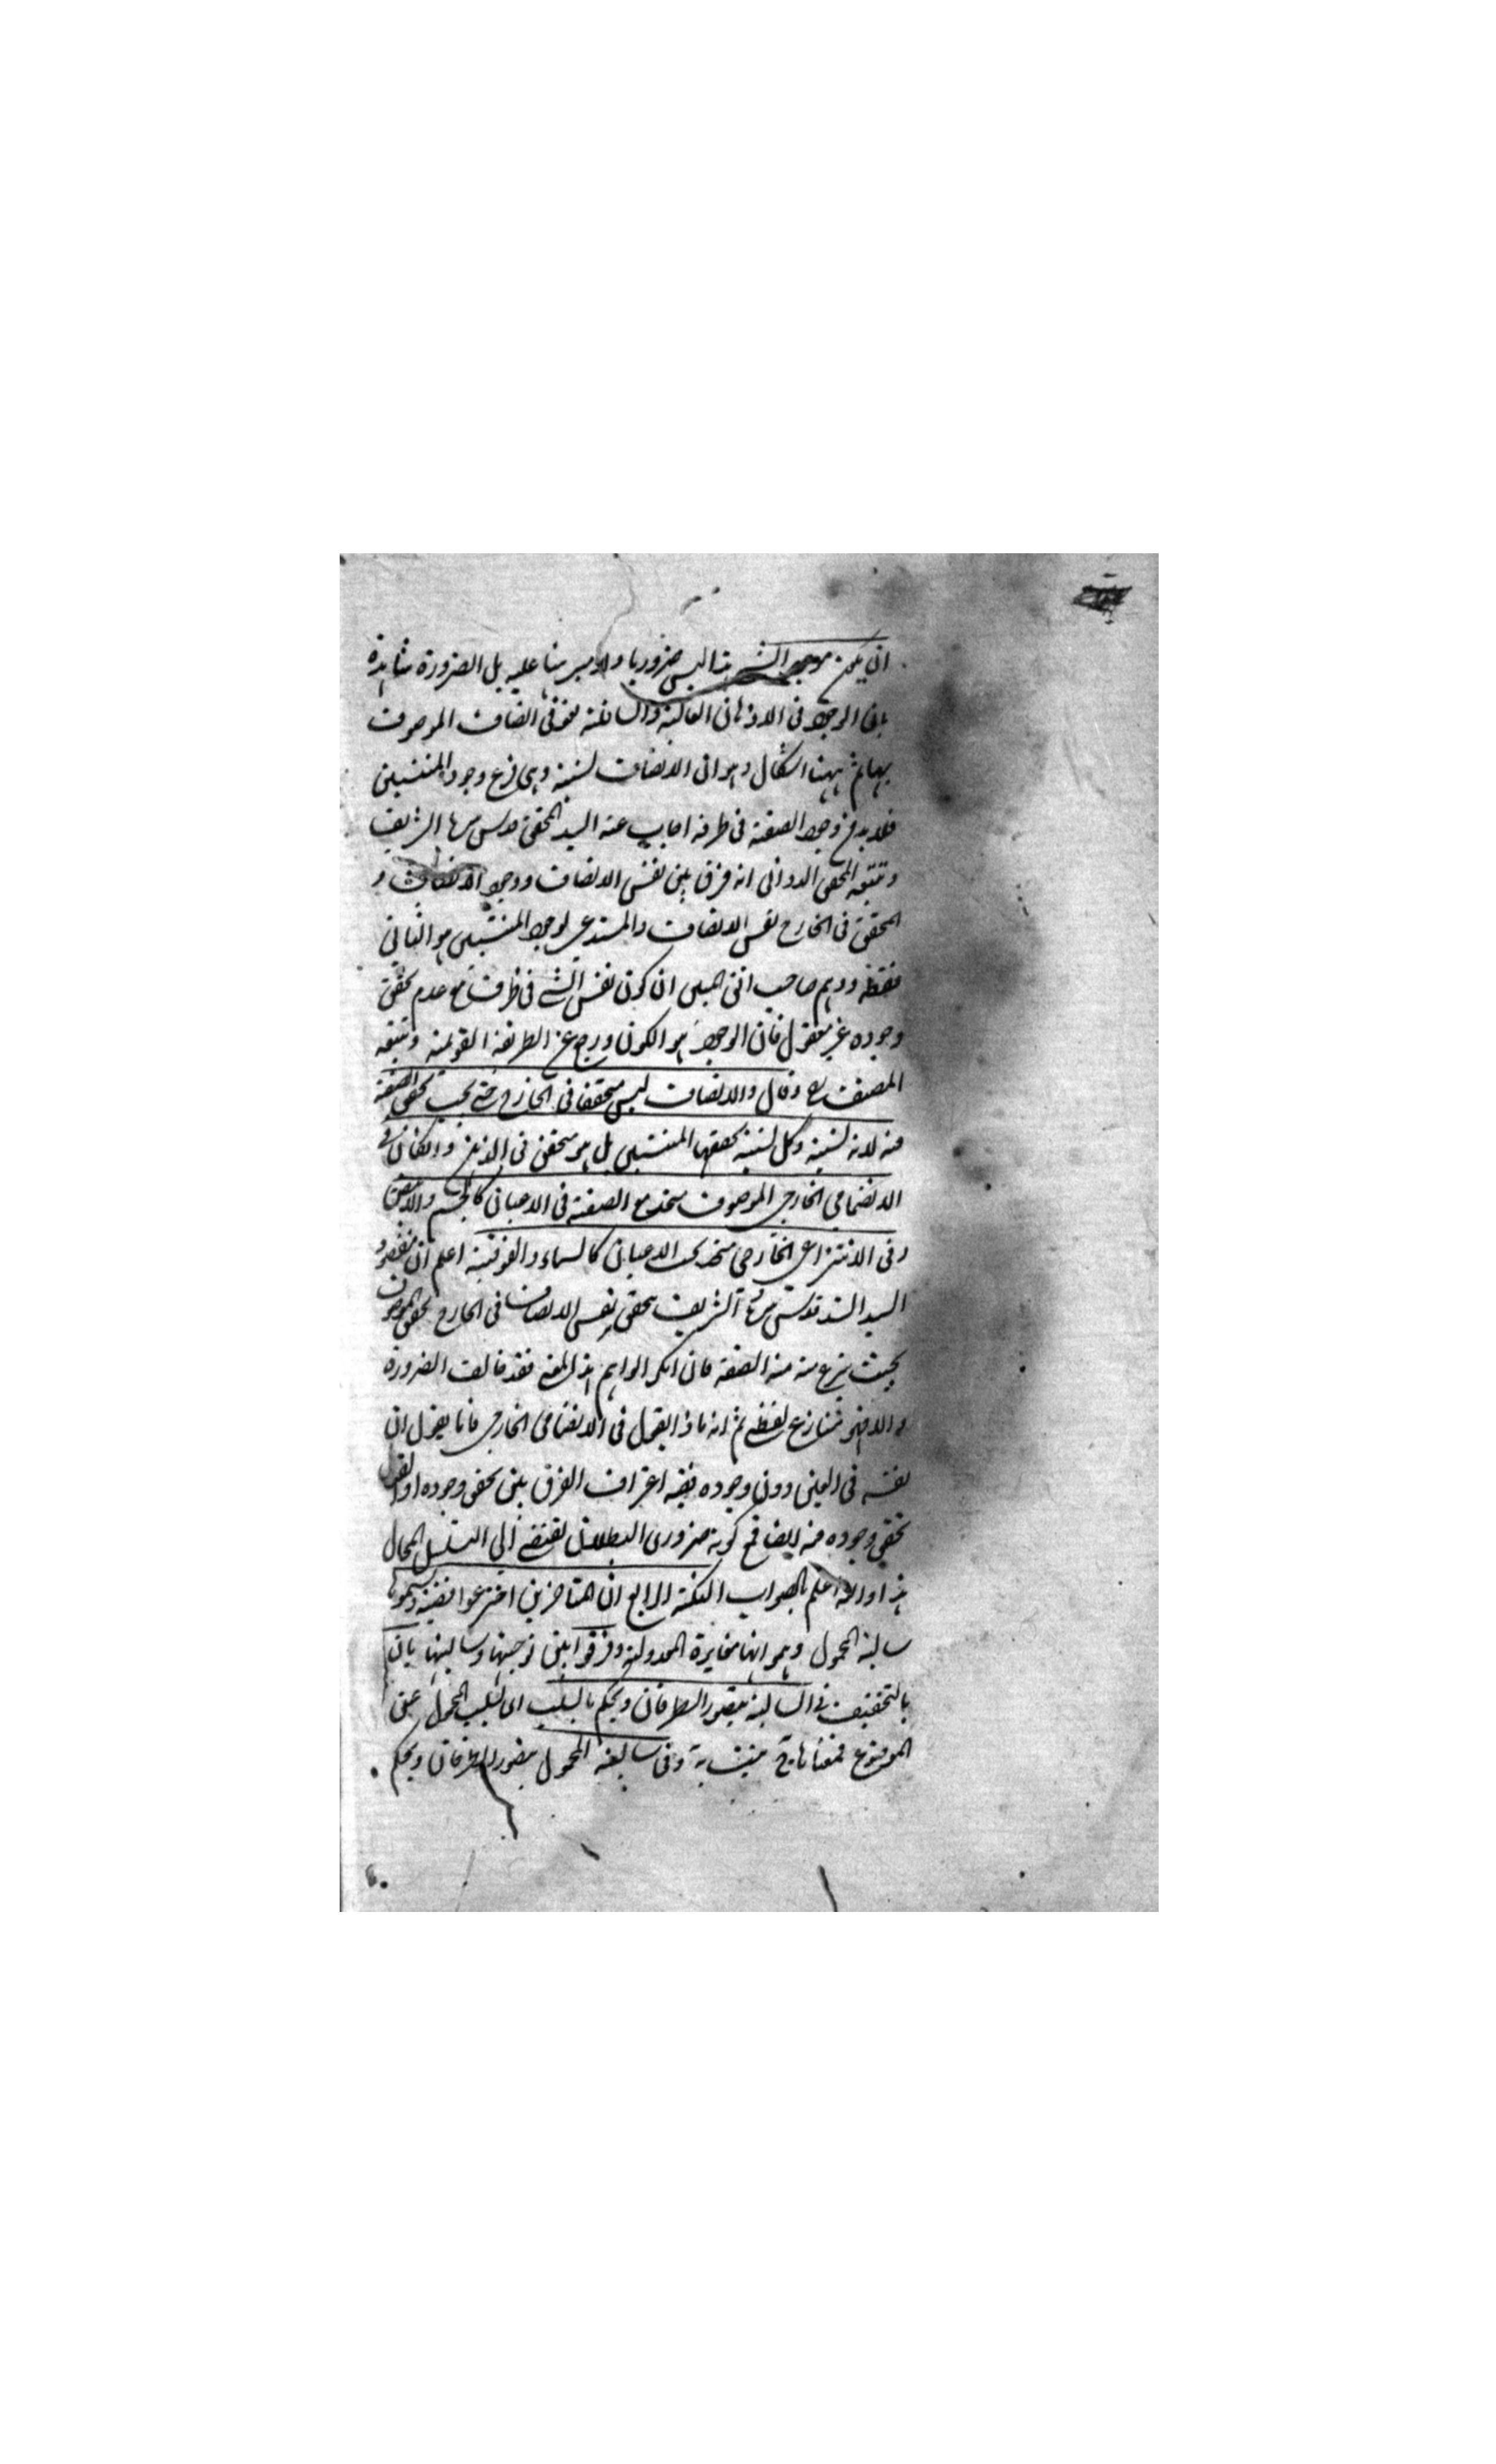 ان يكون موجود الشيء هذا ليس ضروريا ولا مبرهنا عليه بل الضرورة شاهدة
بان الوجود في الاذهان العالية والسافلة لغو في اتصاف الموصوف
بها ثم ههنا اشكال وهو ان الاتصاف نسبة وهي فرع وجود المنتسبين
فلا بد من وجود الصفة في ظرفه اجاب عنه السيد المحقق قدس سره الشريف
وتبعه المحقق الدواني انه فرق بين نفس الاتصاف ووجود الاتصاف و
المحقق في الخارج نفس الاتصاف والمستدعي لوجود المنتسبين هو الثاني
فقط ووهم صاحب افق المبين ان كون نفس الشيء في ظرف مع عدم تحقق
وجوده غير معقول فان الوجود هو الكون ورجع عن الطريقة القويمة وتبعه
المصنف رح وقال والاتصاف ليس متحققا في الخارج حتى يجب تحقق الصفة
فيه لانه نسبة وكل نسبة تحققها المنتسبين بل هو متحقق في الذهن وان كان في
الانضمامي الخارجي الموصوف متحد مع الصفة في الاعيان كالجسم والابيض
وفي الانتزاعي الخارجي متحد بحسب الاعيان كالسماء والفوقية اعلم ان مقصود
السيد السند قدس سره الشريف بتحقق نفس الاتصاف في الخارج تحقق الموصوف
بحيث ينتزع منه منه الصفة فان انكر الواهم هذا المعنى فقد خالف الضرورة
والا فهو تنازع لفظي ثم انه ماذا يقول في الانضمامي الخارجي فانا يقول ان
نفسه في العين دون وجوده ففيه اعتراف الفرق بين تحقق وجوده او نفس
تحقق وجوده فيه ايضا فمع كونه ضروري البطلان يفضي الى التسلسل المحال
هذا والله اعلم بالصواب النكتة الرابع ان المتاخرين اخترعوا قضية وسموها
سالبة المحمول وهموا انها مغايرة المعدولة وفرقوا بين موجبتها وسالبتها بان
بالتخفيف في السالبة يتصور الطرفان ويحكم بالسلب اي بسلب المحمول عن
الموضوع فمعناها ج نيست ب وفي سالبة المحمول يتصور الطرفان ويحكم